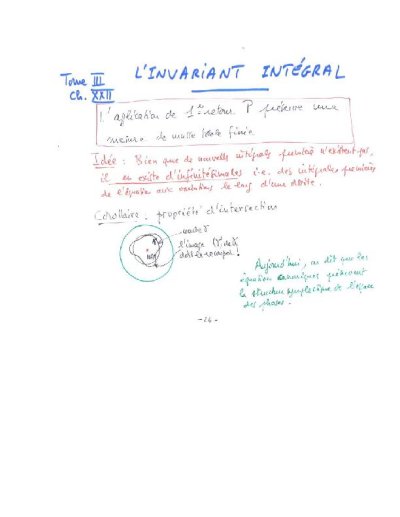 Tome III
Ch. XXII
L'INVARIANT INTÉGRAL
L'application de 1er retour P préserve une
mesure de masse totale finie
Idée : Bien que de nouvelles intégrales premières n'existent pas,
il en existe d'infinitésimales i.e. des intégrales premières
de l'équation aux variations le long d'une droite.
Corollaire : propriété d'intersection
courbe γ
l'image P(γ) de γ
doit la recouper !
Aujourd'hui, on dit que les
équations canoniques préservent
la structure symplectique de l'espace
des phases.
- 24 -